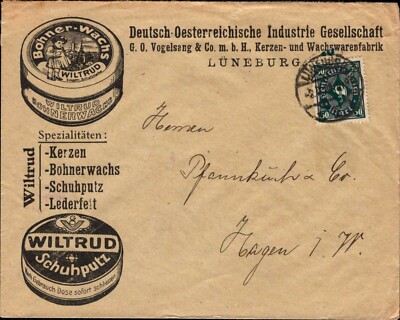 Deutsch-Oesterreichische Industrie Gesellschaft
G. O. Vogelseng & Co. m. b. H., Kerzen- und Wachswarenfabrik
LÜNEBURG
Bohner-Wachs
WILTRUD
WILTRUD
BOHNERWACHS
Spezialitäten:
Wiltrud
-Kerzen
-Bohnerwachs
-Schuhputz
-Lederfett
WILTRUD
Schuhputz
Nach Gebrauch Dose sofort schliessen
50 50
Herren
Pfannkuch & Co.
Hagen i. W.